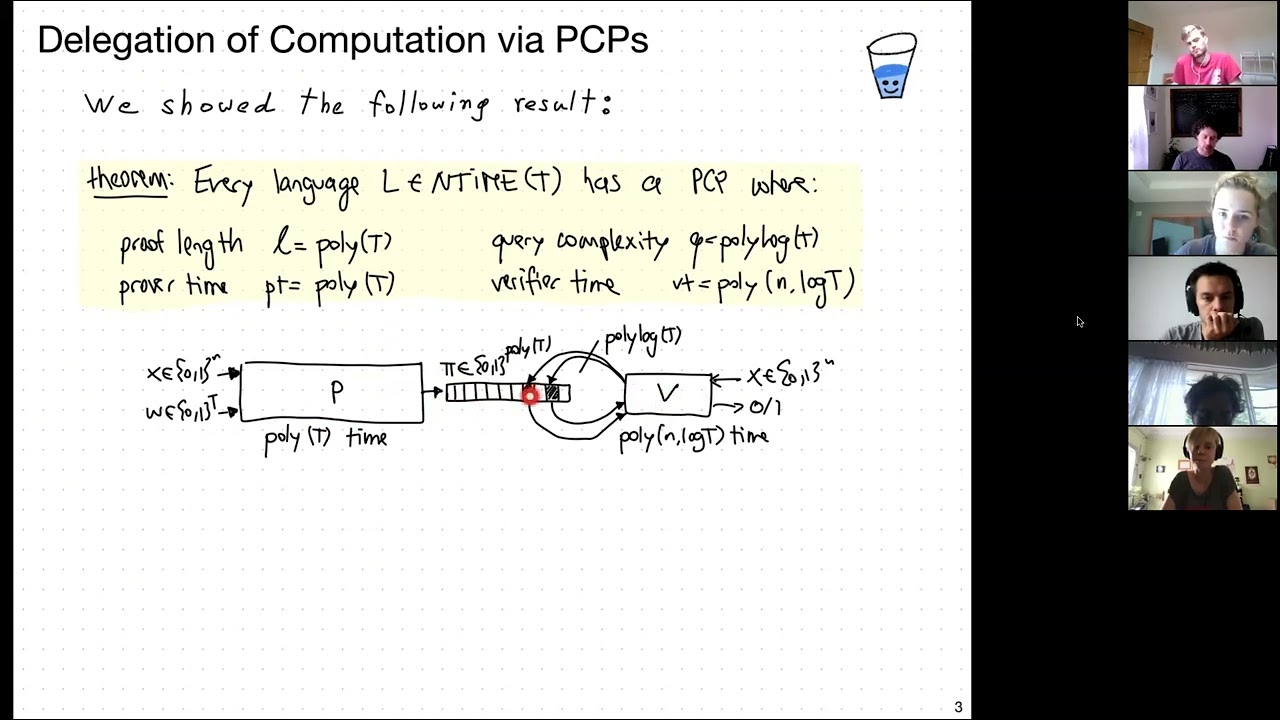 Delegation of Computation via PCPs
We showed the following result:
theorem: Every language L ∈ NTIME(T) has a PCP where:
proof length l = poly(T) query complexity q=polylog(T)
prover time pt= poly(T) verifier time vt=poly(n,logT)
x∈{0,1}ⁿ
w∈{0,1}ᵀ
P
poly(T) time
π∈{0,1}^poly(T)
polylog(T)
V
poly(n,logT) time
x∈{0,1}ⁿ
0/1
3